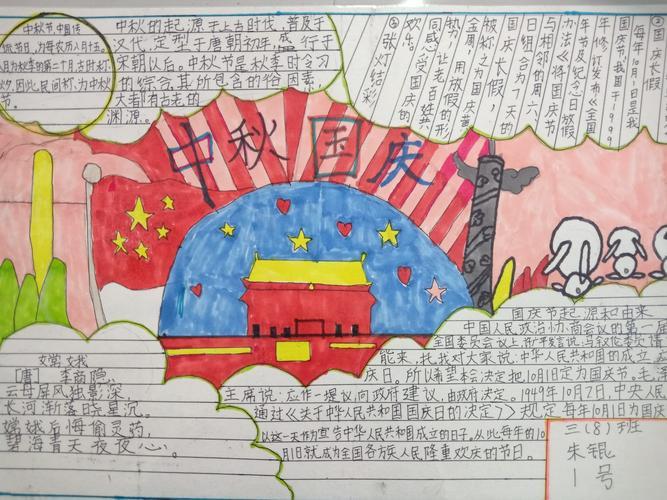 中秋节,中国传
统节日,为每农历八月十五。
八月为秋季的第二个月,古时称,
因此,民间称,为中秋
节。
中秋的起源于上古时代,普及于
汉代,定型于唐朝初年,盛行于
宋朝以后。中秋节是秋季时令习
俗的综合,其所包含的俗因素,
大者都有古老的
渊源。
国庆长假
每年10月1日是我
国庆节,我国于1999
年修订发布《全国
年节及纪念日放假
办法》将国庆节
与相邻的周六、
日组合为7天的
国庆长假,
被称之为国庆黄
金周,用放假的形
势,让老百姓共
同感受国庆的
张灯结彩
中秋国庆
嫦娥
[唐] 李商隐
云母屏风烛影深,
长河渐落晓星沉。
嫦娥应悔偷灵药,
碧海青天夜夜心。
国庆节起源和由来
中国人民政治协商会议的第一届
全国委员会议上,许广平发言说,马叙伦委员请
能来,托我对大家说:中华人民共和国的成立
庆日。所以希望本会决定把10月1日定为国庆节,毛泽
主席说:应作一提议,向政府建议,由政府决定。1949年10月2日,中央人民
通过《关于中华人民共和国国庆日的决定》规定每年10月1日为国庆
以这一天作为宣告中华人民共和国成立的日子。从此,每年的10
月1日就成为全国各方族人民隆重欢庆的节日。
三(8)班
朱锟
1号